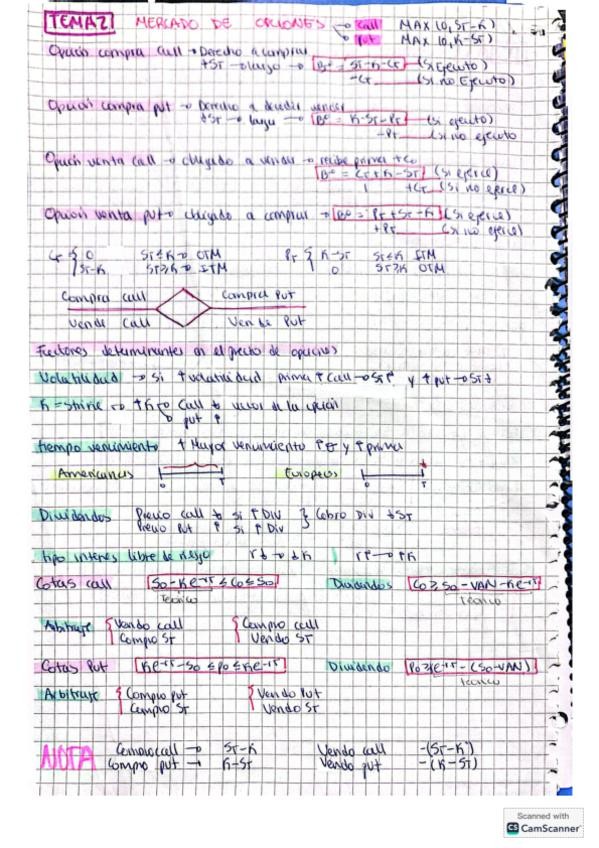 TEMA2 MERCADO DE OPCIONES → call MAX (0, ST-K)
→ put MAX (0, K-ST)
Opción compra call → Derecho a comprar
↑ST → largo → Bº = ST-K-CT (si Ejecuto)
-CT (si no Ejecuto)
Opción compra put → Derecho a vender
↓ST → largo → Bº = K-ST-PT (si ejecuto)
-PT (si no ejecuto
Opción venta call → obligado a vender → recibe prima +Co
Bº = CT+K-ST (si ejerce)
+CT (si no ejerce)
Opción venta put → obligado a comprar → Bº = PT+ST-K (si ejerce)
+PT (si no ejerce)
CT { 0 ST≤K → OTM PT { K-ST ST≤K ITM
ST-K ST≥K → ITM 0 ST≥K OTM
Compra call Compra Put
Vende Call Vende Put
Factores determinantes en el precio de opciones
Volatilidad → si ↑volatilidad prima ↑ Call → ST↑ y ↑ put → ST↓
K = strike → ↑K → Call ↓ valor de la opción
→ put ↑
tiempo vencimiento ↑ Mayor vencimiento ↑σ y ↑ prima
Americanas 0 T Europeas 0 T
Dividendos Precio call ↓ si ↑ DIV } Cobro DIV ↓ST
Precio Put ↑ si ↑ Div
tipo interes libre de riesgo r↓ → ↓K | r↑ → ↑K
Cotas call So-Ke-rT ≤ Co ≤ So Dividendos Co ≥ So-VAN-Ke-rT
Teorico Teorico
Arbitraje { Vendo call { Compro call
Compro ST Vendo ST
Cotas Put Ke-rT-So ≤ po ≤ Ke-rT Dividendo Po ≥ Ke-rT-(So-VAN)
Teorico
Arbitraje { Compro put { Vendo Put
Compro ST Vendo ST
NOTA Compro call → ST-K Vendo call -(ST-K)
Compro put → K-ST Vendo put -(K-ST)
Scanned with
CS CamScanner